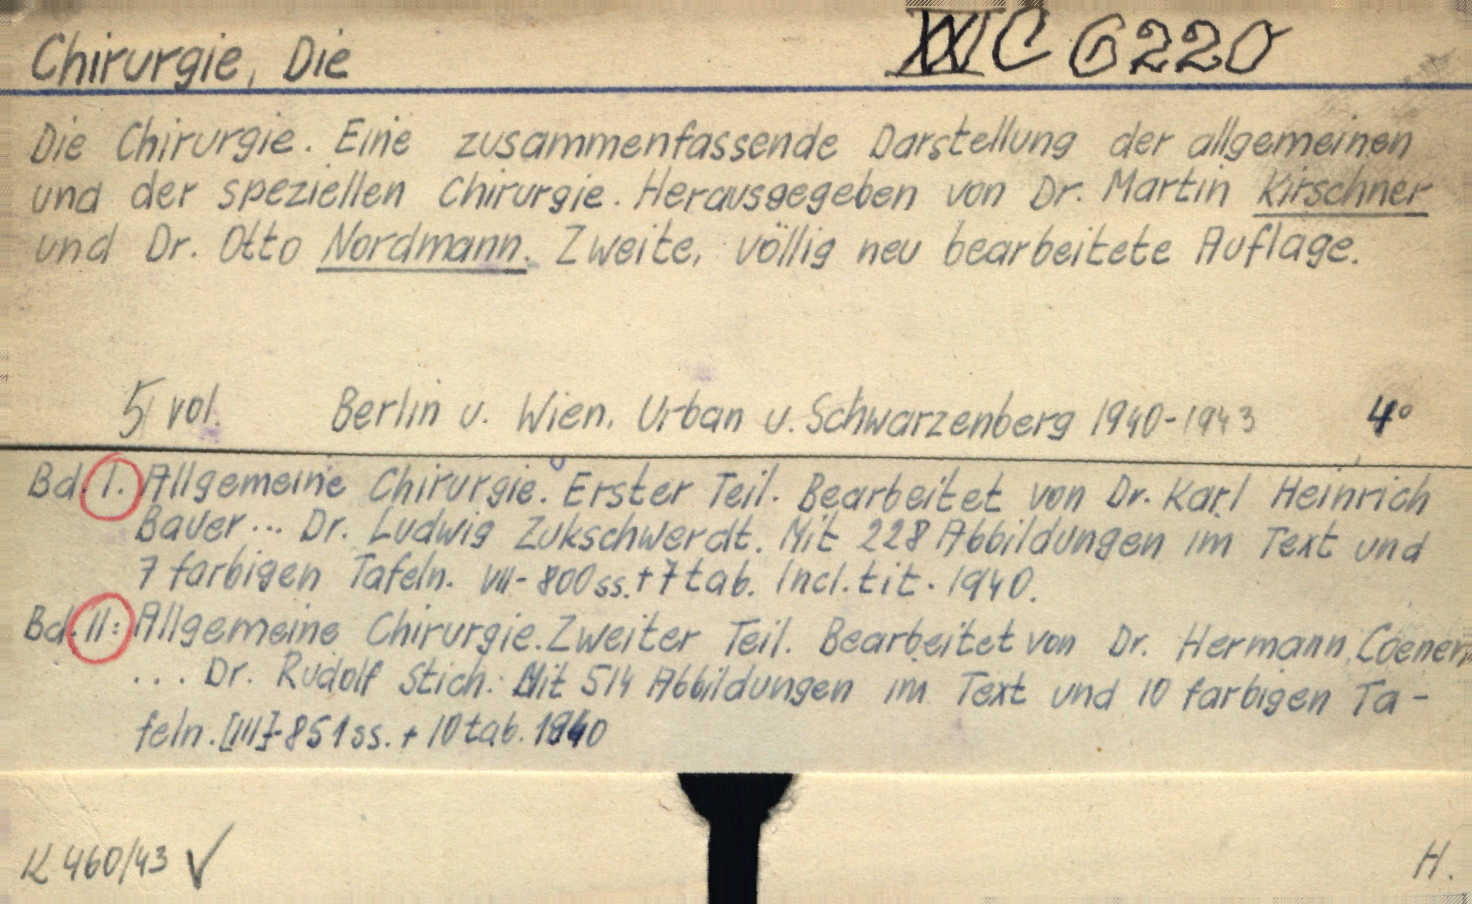 Chirurgie, Die
XXI C 6220
Die Chirurgie. Eine zusammenfassende Darstellung der allgemeinen
und der speziellen Chirurgie. Herausgegeben von Dr. Martin Kirschner
und Dr. Otto Nordmann. Zweite, völlig neu bearbeitete Auflage.
5 vol. Berlin u. Wien, Urban u. Schwarzenberg 1940-1943 4°
Bd. I. Allgemeine Chirurgie. Erster Teil. Bearbeitet von Dr. Karl Heinrich
Bauer ... Dr. Ludwig Zukschwerdt. Mit 228 Abbildungen im Text und
7 farbigen Tafeln. VII-800 ss. + 7 tab. Incl. tit. 1940.
Bd. II: Allgemeine Chirurgie. Zweiter Teil. Bearbeitet von Dr. Hermann Coenen
... Dr. Rudolf Stich. Mit 514 Abbildungen im Text und 10 farbigen Ta-
feln. [III]-851 ss. + 10 tab. 1940
K 460/43 ✓
H.